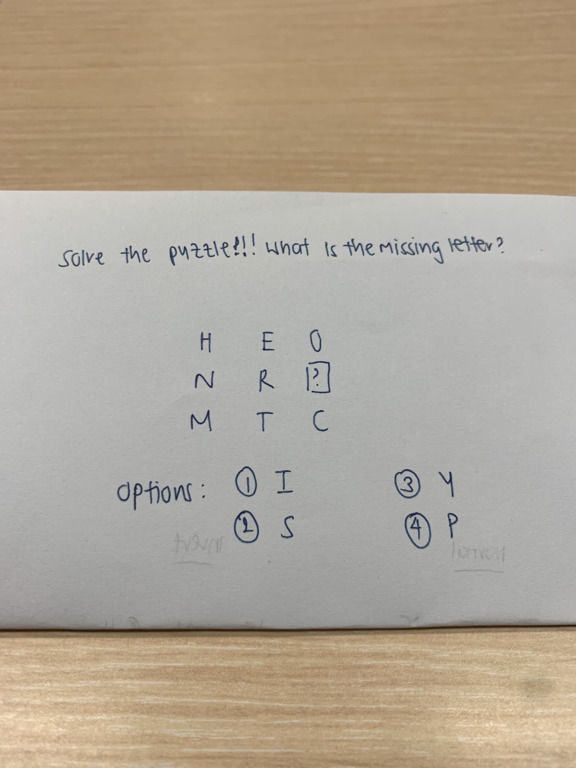 Solve the puzzle?!!! What is the missing letter?
H E O
N R ?
M T C
Options: ① I ③ Y
② S ④ P